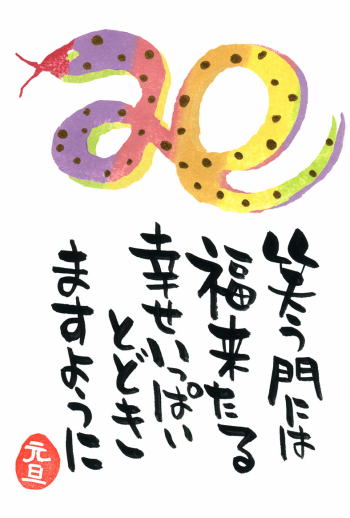 笑う門には
福来たる
幸せいっぱい
とどき
ますように
元旦